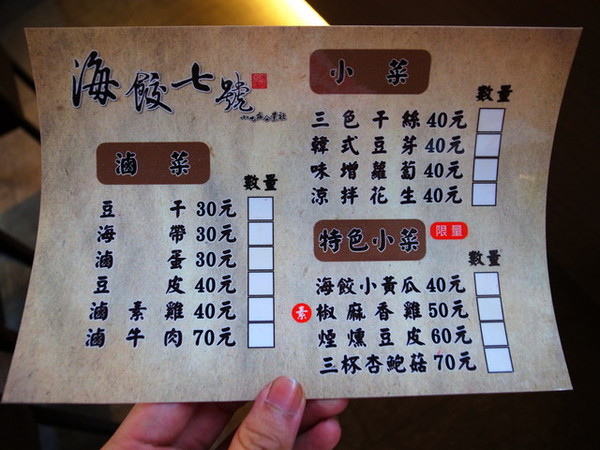 海餃七號
滷菜
數量
豆干30元
海帶30元
滷蛋30元
豆皮40元
滷素雞40元
滷牛肉70元
小菜
數量
三色干絲40元
韓式豆芽40元
味增蘿蔔40元
涼拌花生40元
特色小菜
限量
數量
海餃小黃瓜40元
素 椒麻香雞50元
煙燻豆皮60元
三杯杏鮑菇70元